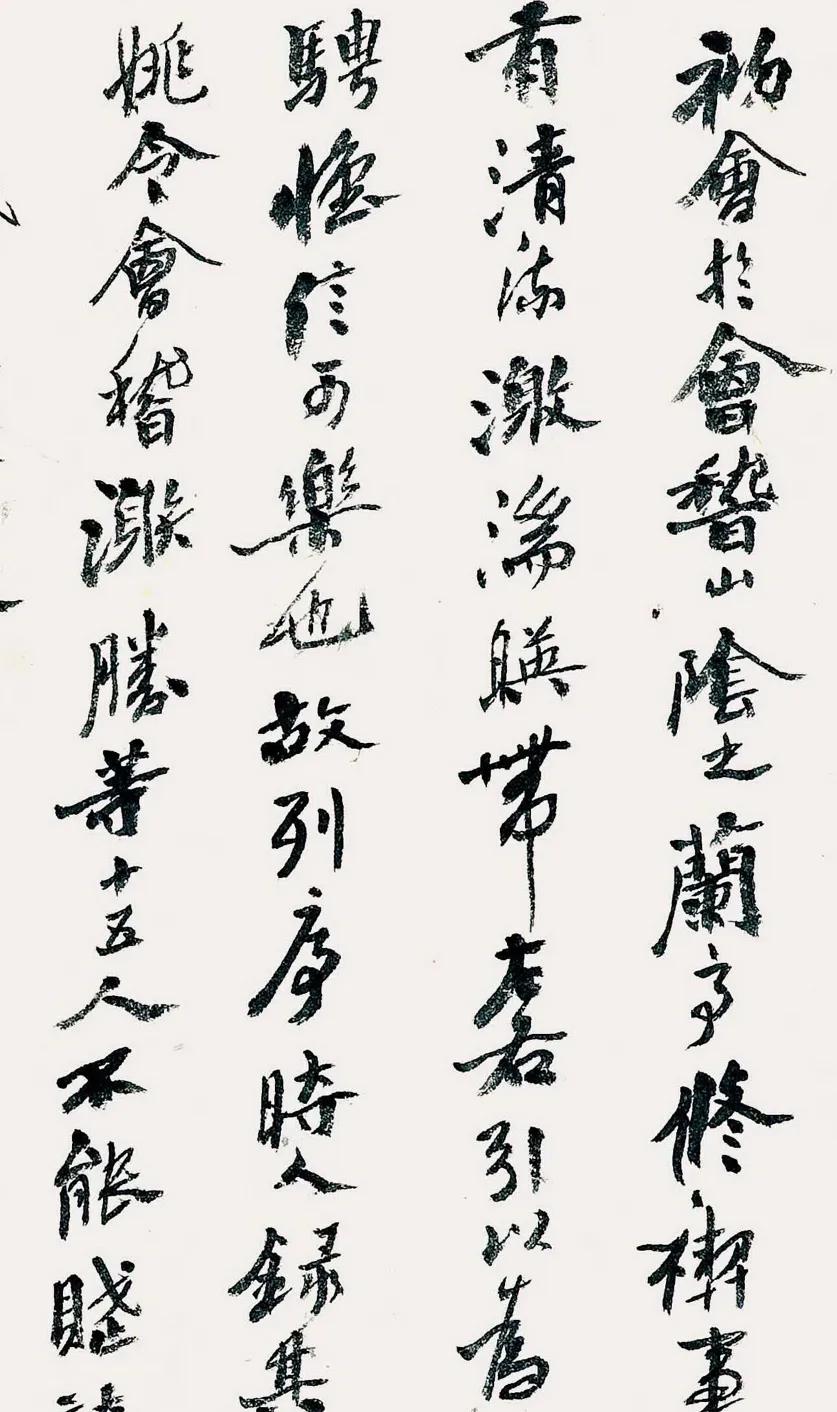 初會於會稽山陰之蘭亭修禊事
有清流激湍暎帶左右引以為
騁懷信可樂也故列序時人録其
姚令會稽
勝等十五人不能賦